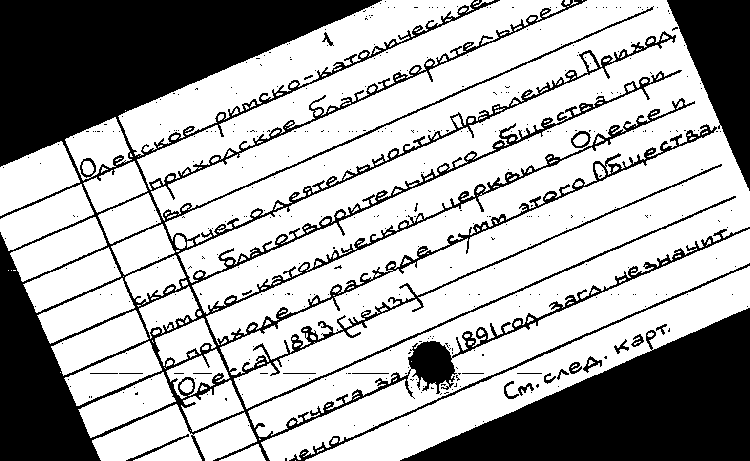 1
Одесское римско-католическое
приходское благотворительное
во.
Отчет о деятельности Правления Приход-
ского благотворительного общества при
римско-католической церкви в Одессе и
о приходе и расходе сумм этого Общества...
[Одесса], 1883 [ценз.]
С отчета за 1891 год загл. незначит.
нено.
См. след. карт.